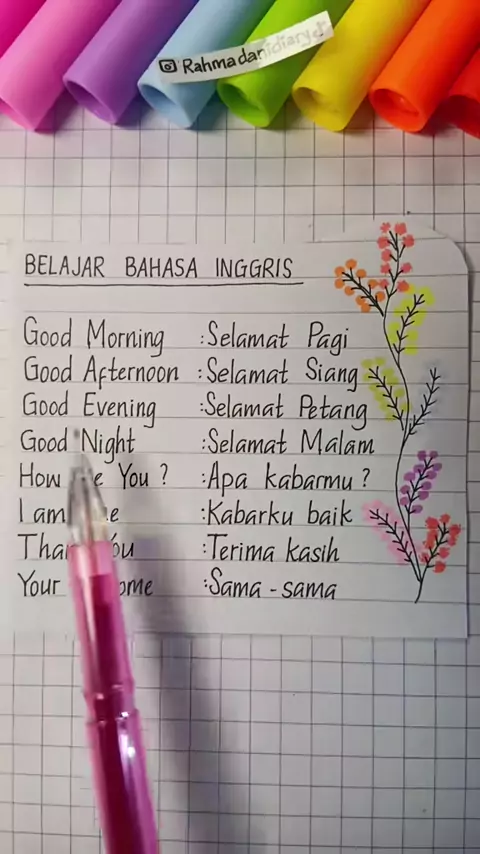 Rahmadanidiary
BELAJAR BAHASA INGGRIS
Good Morning :Selamat Pagi
Good Afternoon :Selamat Siang
Good Evening :Selamat Petang
Good Night :Selamat Malam
How You ? :Apa kabarmu ?
I am :Kabarku baik
:Terima kasih
Your :Sama - sama